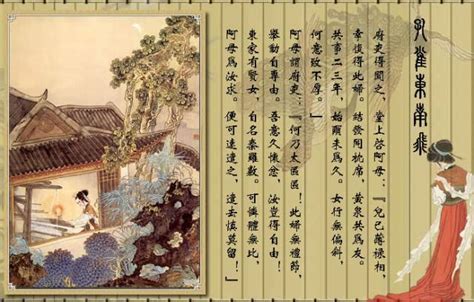 孔雀東南飛
府吏得聞之，堂上啟阿母：『兒已薄祿相，
幸復得此婦。結發同枕席，黃泉共為友。
共事二三年，始爾未為久。女行無偏斜，
何意致不厚。』
阿母謂府吏：『何乃太區區！此婦無禮節，
舉動自專由。吾意久懷忿，汝豈得自由！
東家有賢女，自名秦羅敷。可憐體無比，
阿母為汝求。便可速遣之，遣去慎莫留！』